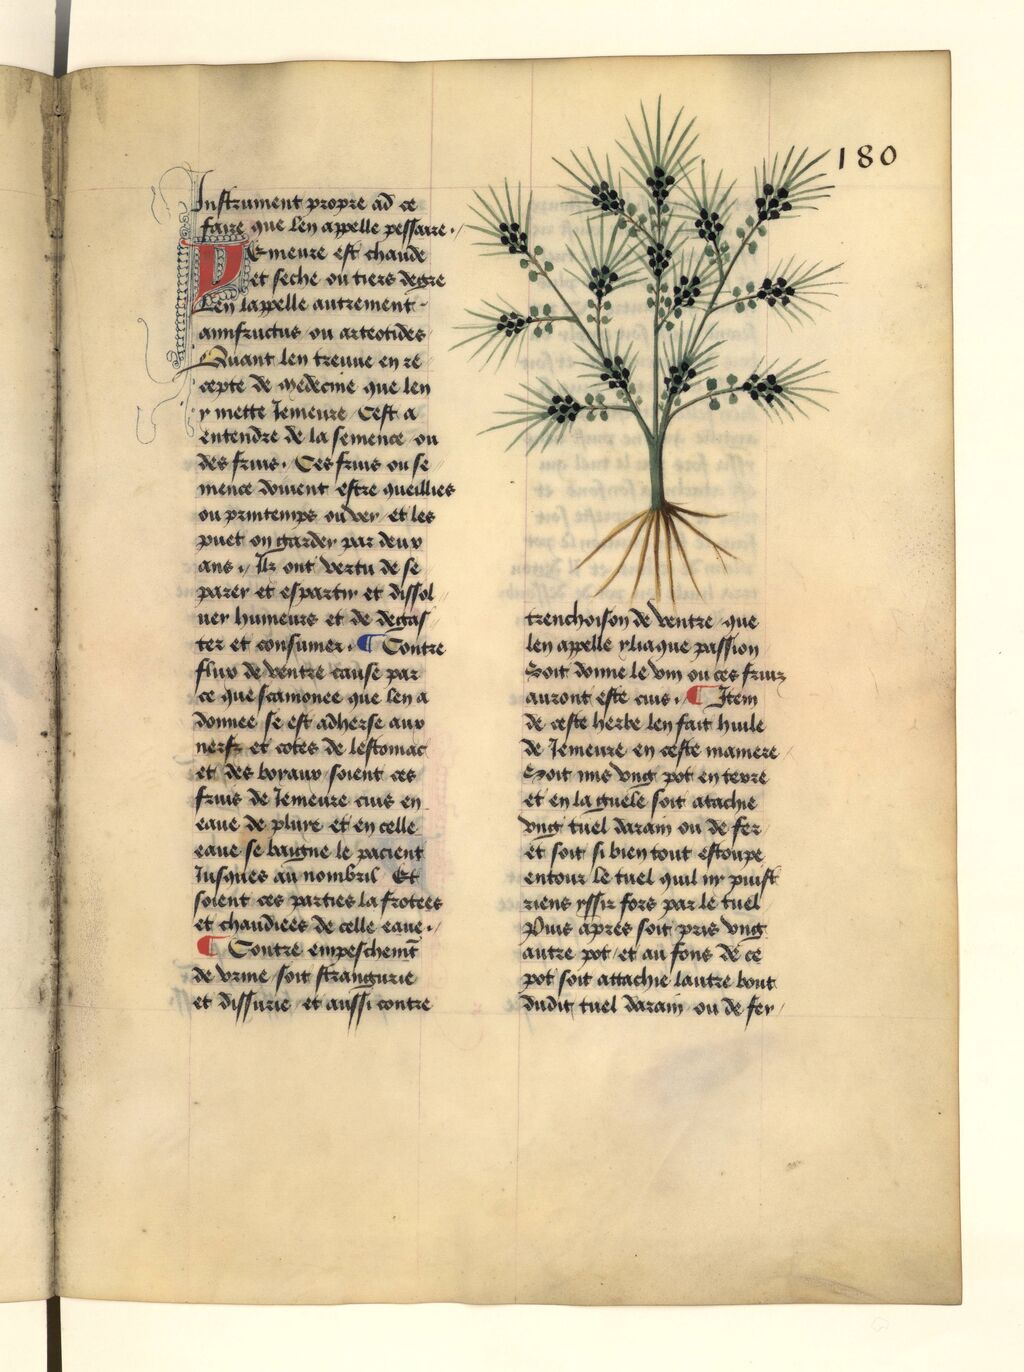 180
Instrument propre ad ce
faire que len appelle pessaire.
Jemeure est chaude
et seche ou tiers degre
Len lappelle autrement
annfructus ou arteotides
Quant len treuue en re
cepte de medecine que len
y mette Jemeure Cest a
entendre de la semence ou
des fruis. Ces fruis ou se
mence doiuent estre queillies
ou printemps ou ver et les
puet on garder par deux
ans. Ilz ont vertu de se
parer et espartir et dissol
uer humeurs et de degas
ter et consumer. ¶ Contre
flux de ventre cause par
ce que scamonee que len a
donnee se est adherse aux
nerfz et cotes de lestomac
et des boyaux soient ces
fruis de Jemeure cuis en
eaue de pluye et en celle
eaue se baigne le pacient
Jusques au nombril Et
soient ces parties la frotees
et chaudiees de celle eaue.
¶ Contre empeschemt
de vrine soit strangurie
et dissurie et aussi contre
trenchoison de ventre que
len appelle yliaque passion
Soit donne le vin ou ces fruiz
auront este cuis. ¶ Item
de ceste herbe len fait huile
de Jemeure en ceste maniere
Soit mis vng pot en terre
et en la guele soit atachie
vng tuel darain ou de fer
et soit si bien tout estoupe
entour le tuel quil ny puist
riens yssir fors par le tuel
Puis apres soit pris vng
autre pot et au fons de ce
pot soit attachie lautre bout
dudit tuel darain ou de fer